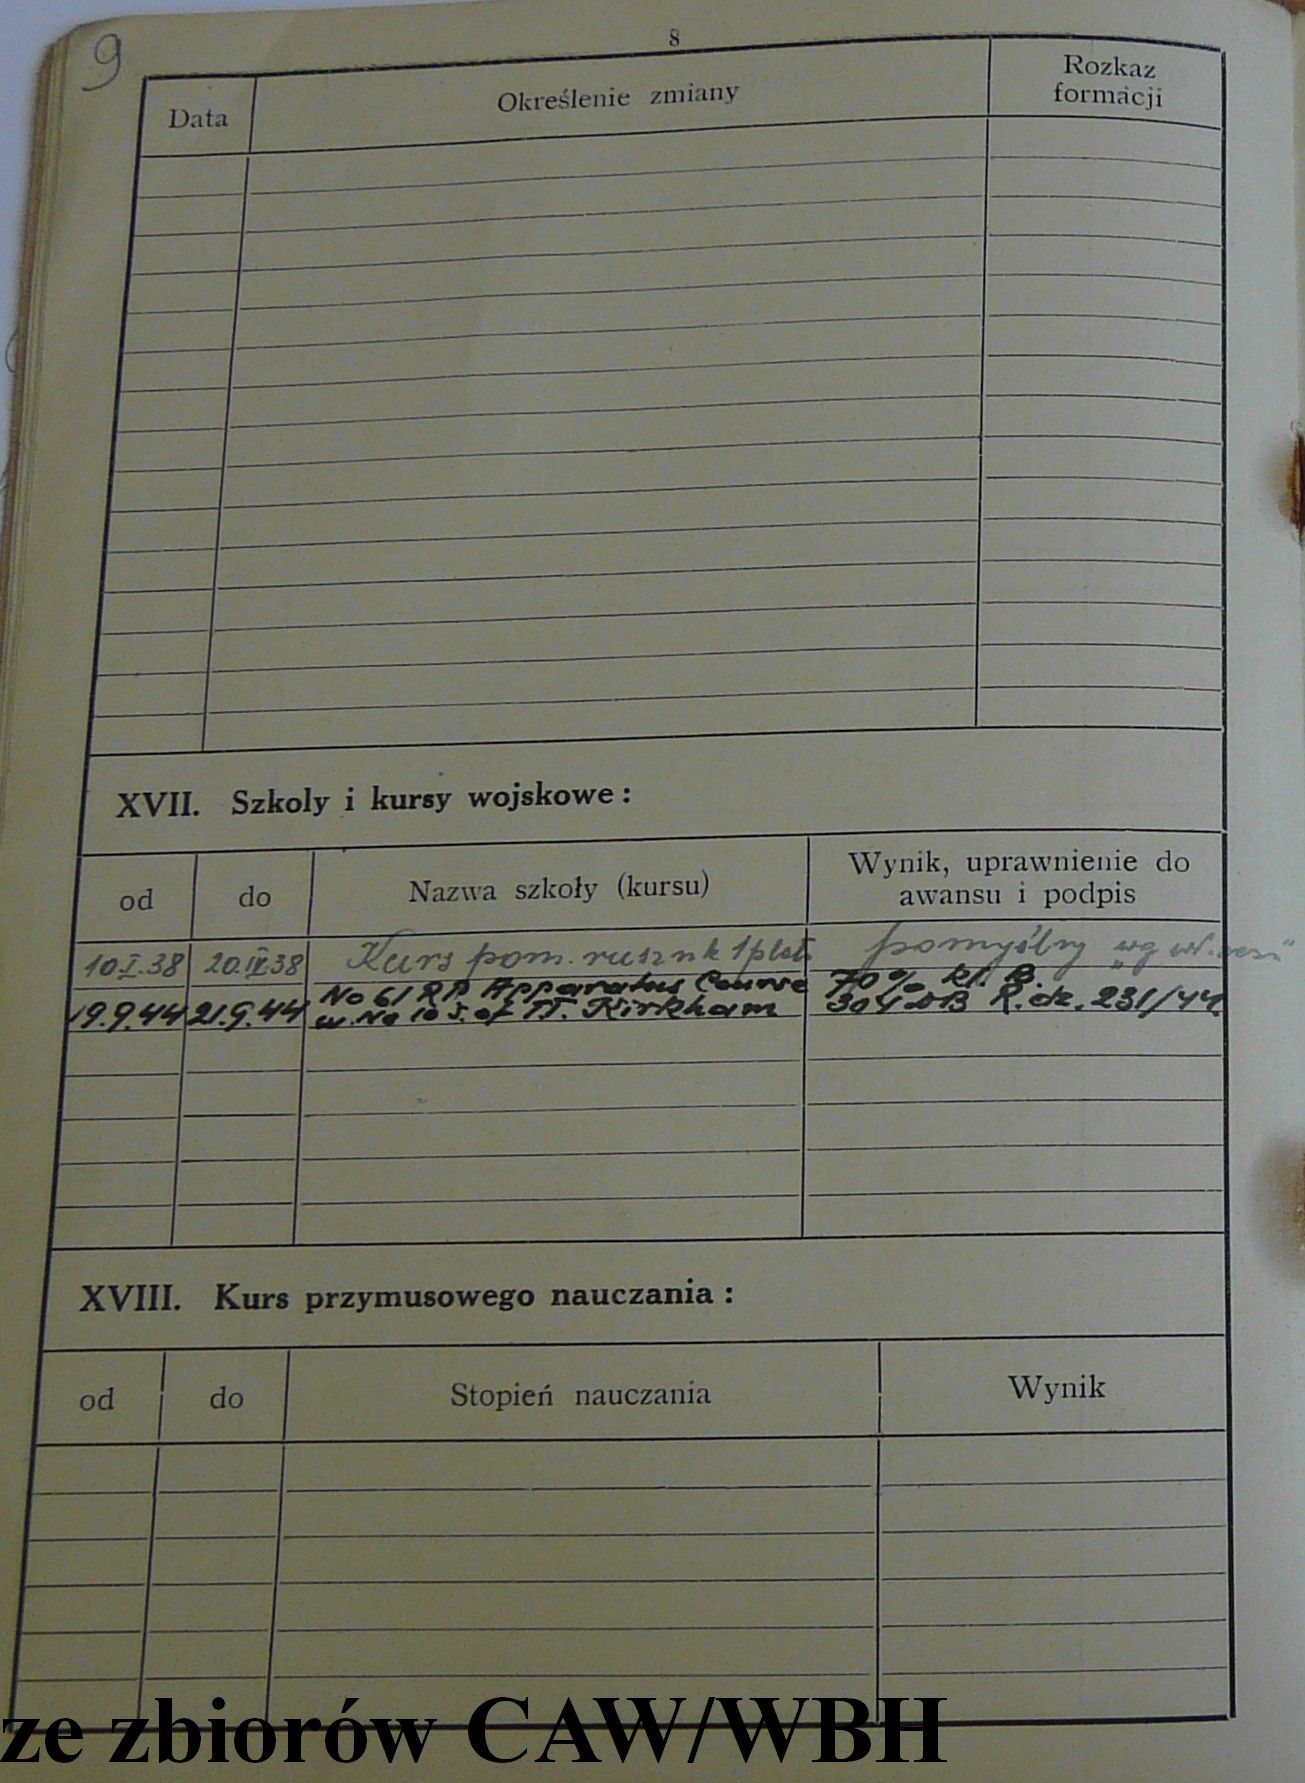 9
8
Data Określenie zmiany Rozkaz formacji
XVII. Szkoly i kursy wojskowe :
od do Nazwa szkoły (kursu) Wynik, uprawnienie do awansu i podpis
10.I.38 20.IV.38 Kurs pom. ruszn k 1 plot. pomyślny "wg
19.9.44 21.9.44 No 61 RP. Apparatus Course 70% kl. B.
w No 10 S. of TT. Kirkham 304 DB R.dz. 231/44.
XVIII. Kurs przymusowego nauczania :
od do Stopień nauczania Wynik
ze zbiorów CAW/WBH